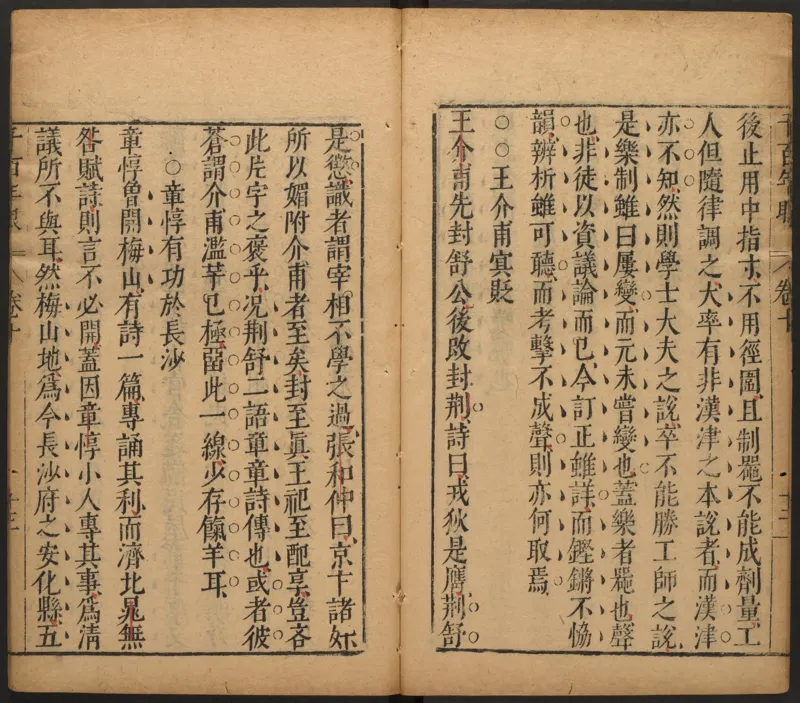 後止用中指寸不用徑圍且制器不能成劑量工
人但隨律調之大率有非漢津之本說者而漢津
亦不知然則學士大夫之說卒不能勝工師之說
是樂制雖曰屢變而元未嘗變也蓋樂者器也聲
也非徒以資議論而已今訂正雖詳而鏗鏘不恊
韻辨析雖可聽而考擊不成聲則亦何取焉
○○王介甫寘貶
王介甫先封舒公後攺封荆詩曰戎狄是膺荆舒
是懲識者謂宰相不學之過張和仲曰京卞諸奸
所以媚附介甫者至矣封至眞王祀至配享豈吝
此片字之褒乎况荆舒二語章章詩傳也或者彼
蒼謂介甫濫竽已極畱此一線少存餼羊耳
○章惇有功於長沙
章惇曾開梅山有詩一篇專誦其利而濟北晁無
咎賦詩則言不必開蓋因章惇小人專其事爲清
議所不與耳然梅山地爲今長沙府之安化縣五
千百年眼 卷十 十三